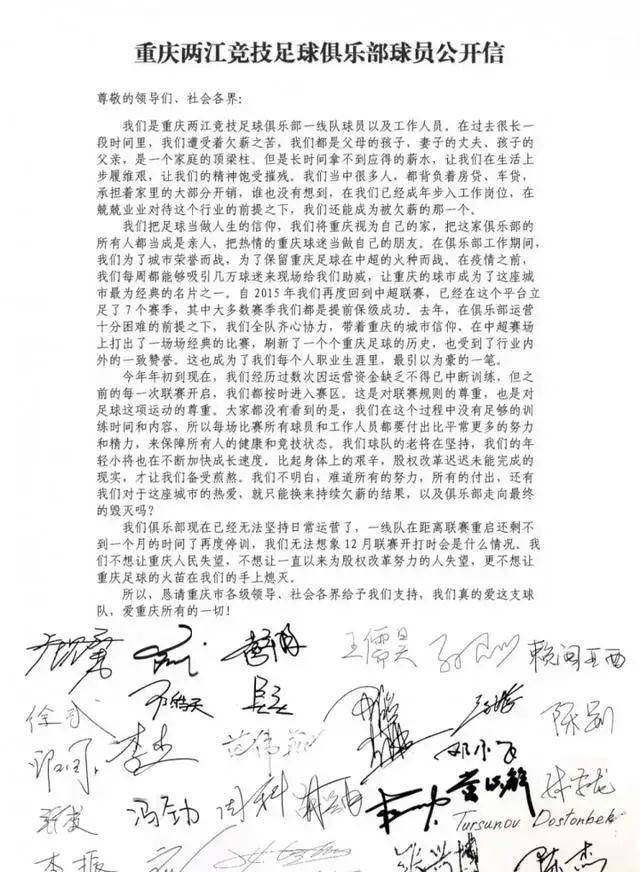 重庆两江竞技足球俱乐部球员公开信
尊敬的领导们、社会各界：
我们是重庆两江竞技足球俱乐部一线队球员以及工作人员。在过去很长一
段时间里，我们遭受着欠薪之苦，我们都是父母的孩子，妻子的丈夫、孩子的
父亲，是一个家庭的顶梁柱。但是长时间拿不到应得的薪水，让我们在生活上
步履维艰，让我们的精神饱受摧残。我们当中很多人，都背负着房贷、车贷，
承担着家里的大部分开销，谁也没有想到，在我们已经成年步入工作岗位，在
兢兢业业对待这个行业的前提之下，我们还能成为被欠薪的那一个。
我们把足球当做人生的信仰，我们将重庆视为自己的家，把这家俱乐部的
所有人都当成是亲人，把热情的重庆球迷当做自己的朋友。在俱乐部工作期间，
我们为了城市荣誉而战，为了保留重庆足球在中超的火种而战。在疫情之前，
我们每周都能够吸引几万球迷来现场给我们助威，让重庆的球市成为了这座城
市最为经典的名片之一。自2015年我们再度回到中超联赛，已经在这个平台立
足了7个赛季，其中大多数赛季我们都是提前保级成功。去年，在俱乐部运营
十分困难的前提之下，我们全队齐心协力，带着重庆的城市信仰，在中超赛场
上打出了一场场经典的比赛，刷新了一个个重庆足球的历史，也受到了行业内
外的一致赞誉。这也成为了我们每个人职业生涯里，最引以为豪的一笔。
今年年初到现在，我们经历过数次因运营资金缺乏不得已中断训练，但之
前的每一次联赛开启，我们都按时进入赛区。这是对联赛规则的尊重，也是对
足球这项运动的尊重。大家都没有看到的是，我们在这个过程中没有足够的训
练时间和内容，所以每场比赛所有球员和工作人员都要付出比平常更多的努力
和精力，来保障所有人的健康和竞技状态。我们球队的老将在坚持，我们的年
轻小将也在不断加快成长速度。比起身体上的艰辛，股权改革迟迟未能完成的
现实，才让我们备受煎熬。我们不明白，难道所有的努力，所有的付出，还有
我们对于这座城市的热爱，就只能换来持续欠薪的结果，以及俱乐部走向最终
的毁灭吗？
我们俱乐部现在已经无法坚持日常运营了，一线队在距离联赛重启还剩不
到一个月的时间了再度停训，我们无法想象12月联赛开打时会是什么情况。我
们不想让重庆人民失望，不想让一直以来为股权改革努力的人失望，更不想让
重庆足球的火苗在我们的手上熄灭。
所以，恳请重庆市各级领导、社会各界给予我们支持，我们真的爱这支球
队，爱重庆所有的一切！
王儒昊
邓小飞
冯劲 周科
Tursunov Dostonbek
张兴博 陈杰